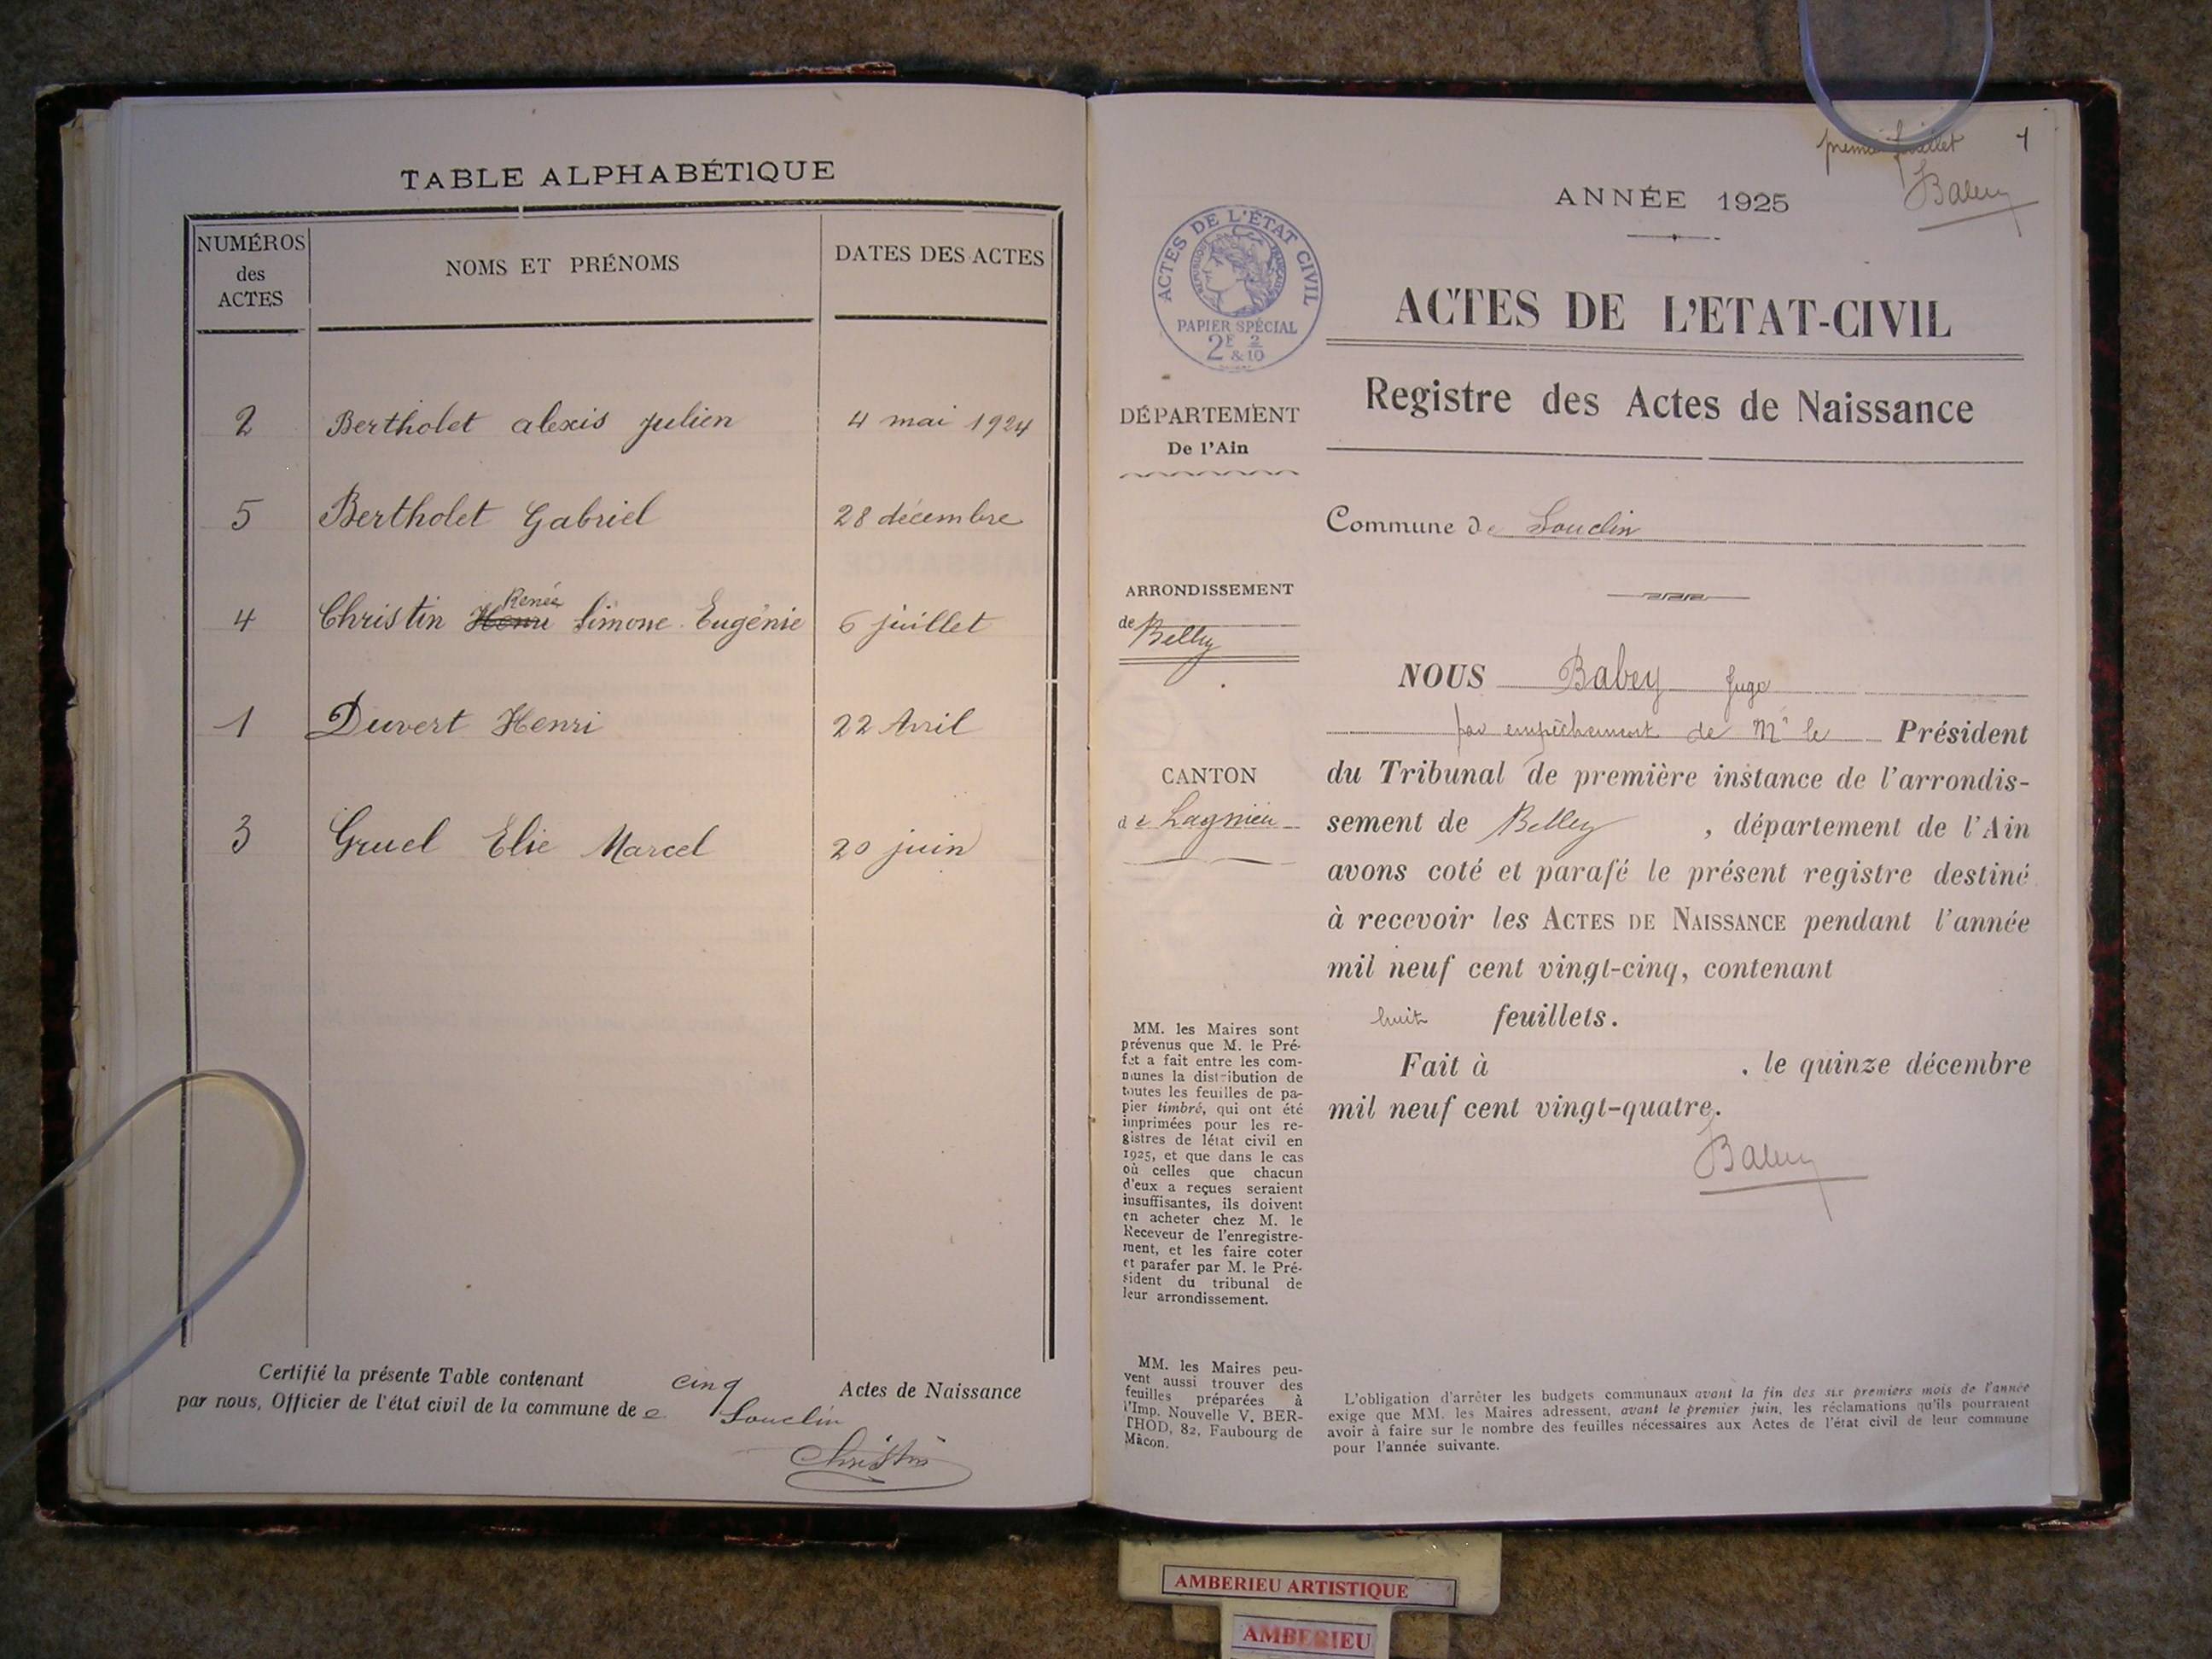 TABLE ALPHABÉTIQUE
NUMÉROS
des
ACTES
NOMS ET PRÉNOMS
DATES DES ACTES
2 Bertholet alexis Julien 4 mai 1924
5 Bertholet Gabriel 28 décembre
Renée
4 Christin Henri Simone Eugénie 6 juillet
1 Duvert Henri 22 Avril
3 Gruel Elie Marcel 20 juin
Certifié la présente Table contenant cinq Actes de Naissance
par nous, Officier de l'état civil de la commune de Souclin
Christin
premier feuillet 1
Babey
ANNÉE 1925
ACTES DE L'ÉTAT CIVIL
RÉPUBLIQUE FRANÇAISE
PAPIER SPÉCIAL
2F 2
& 10
ACTES DE L'ETAT-CIVIL
Registre des Actes de Naissance
DÉPARTEMENT
De l'Ain
Commune de Souclin
ARRONDISSEMENT
de Belley
CANTON
de Lagnieu
NOUS Babey juge
par empêchement de Mr le Président
du Tribunal de première instance de l'arrondis-
sement de Belley, département de l'Ain
avons coté et parafé le présent registre destiné
à recevoir les ACTES DE NAISSANCE pendant l'année
mil neuf cent vingt-cinq, contenant
huit feuillets.
Fait à , le quinze décembre
mil neuf cent vingt-quatre.
Babey
MM. les Maires sont
prévenus que M. le Pré-
fet a fait entre les com-
munes la distribution de
toutes les feuilles de pa-
pier timbré, qui ont été
imprimées pour les re-
gistres de létat civil en
1925, et que dans le cas
où celles que chacun
d'eux a reçues seraient
insuffisantes, ils doivent
en acheter chez M. le
Receveur de l'enregistre-
ment, et les faire coter
et parafer par M. le Pré-
sident du tribunal de
leur arrondissement.
MM. les Maires peu-
vent aussi trouver des
feuilles préparées à
l'Imp. Nouvelle V. BER-
THOD, 82, Faubourg de
Mâcon.
L'obligation d'arrêter les budgets communaux avant la fin des six premiers mois de l'année
exige que MM. les Maires adressent, avant le premier juin, les réclamations qu'ils pourraient
avoir à faire sur le nombre des feuilles nécessaires aux Actes de l'état civil de leur commune
pour l'année suivante.
AMBERIEU ARTISTIQUE
AMBERIEU